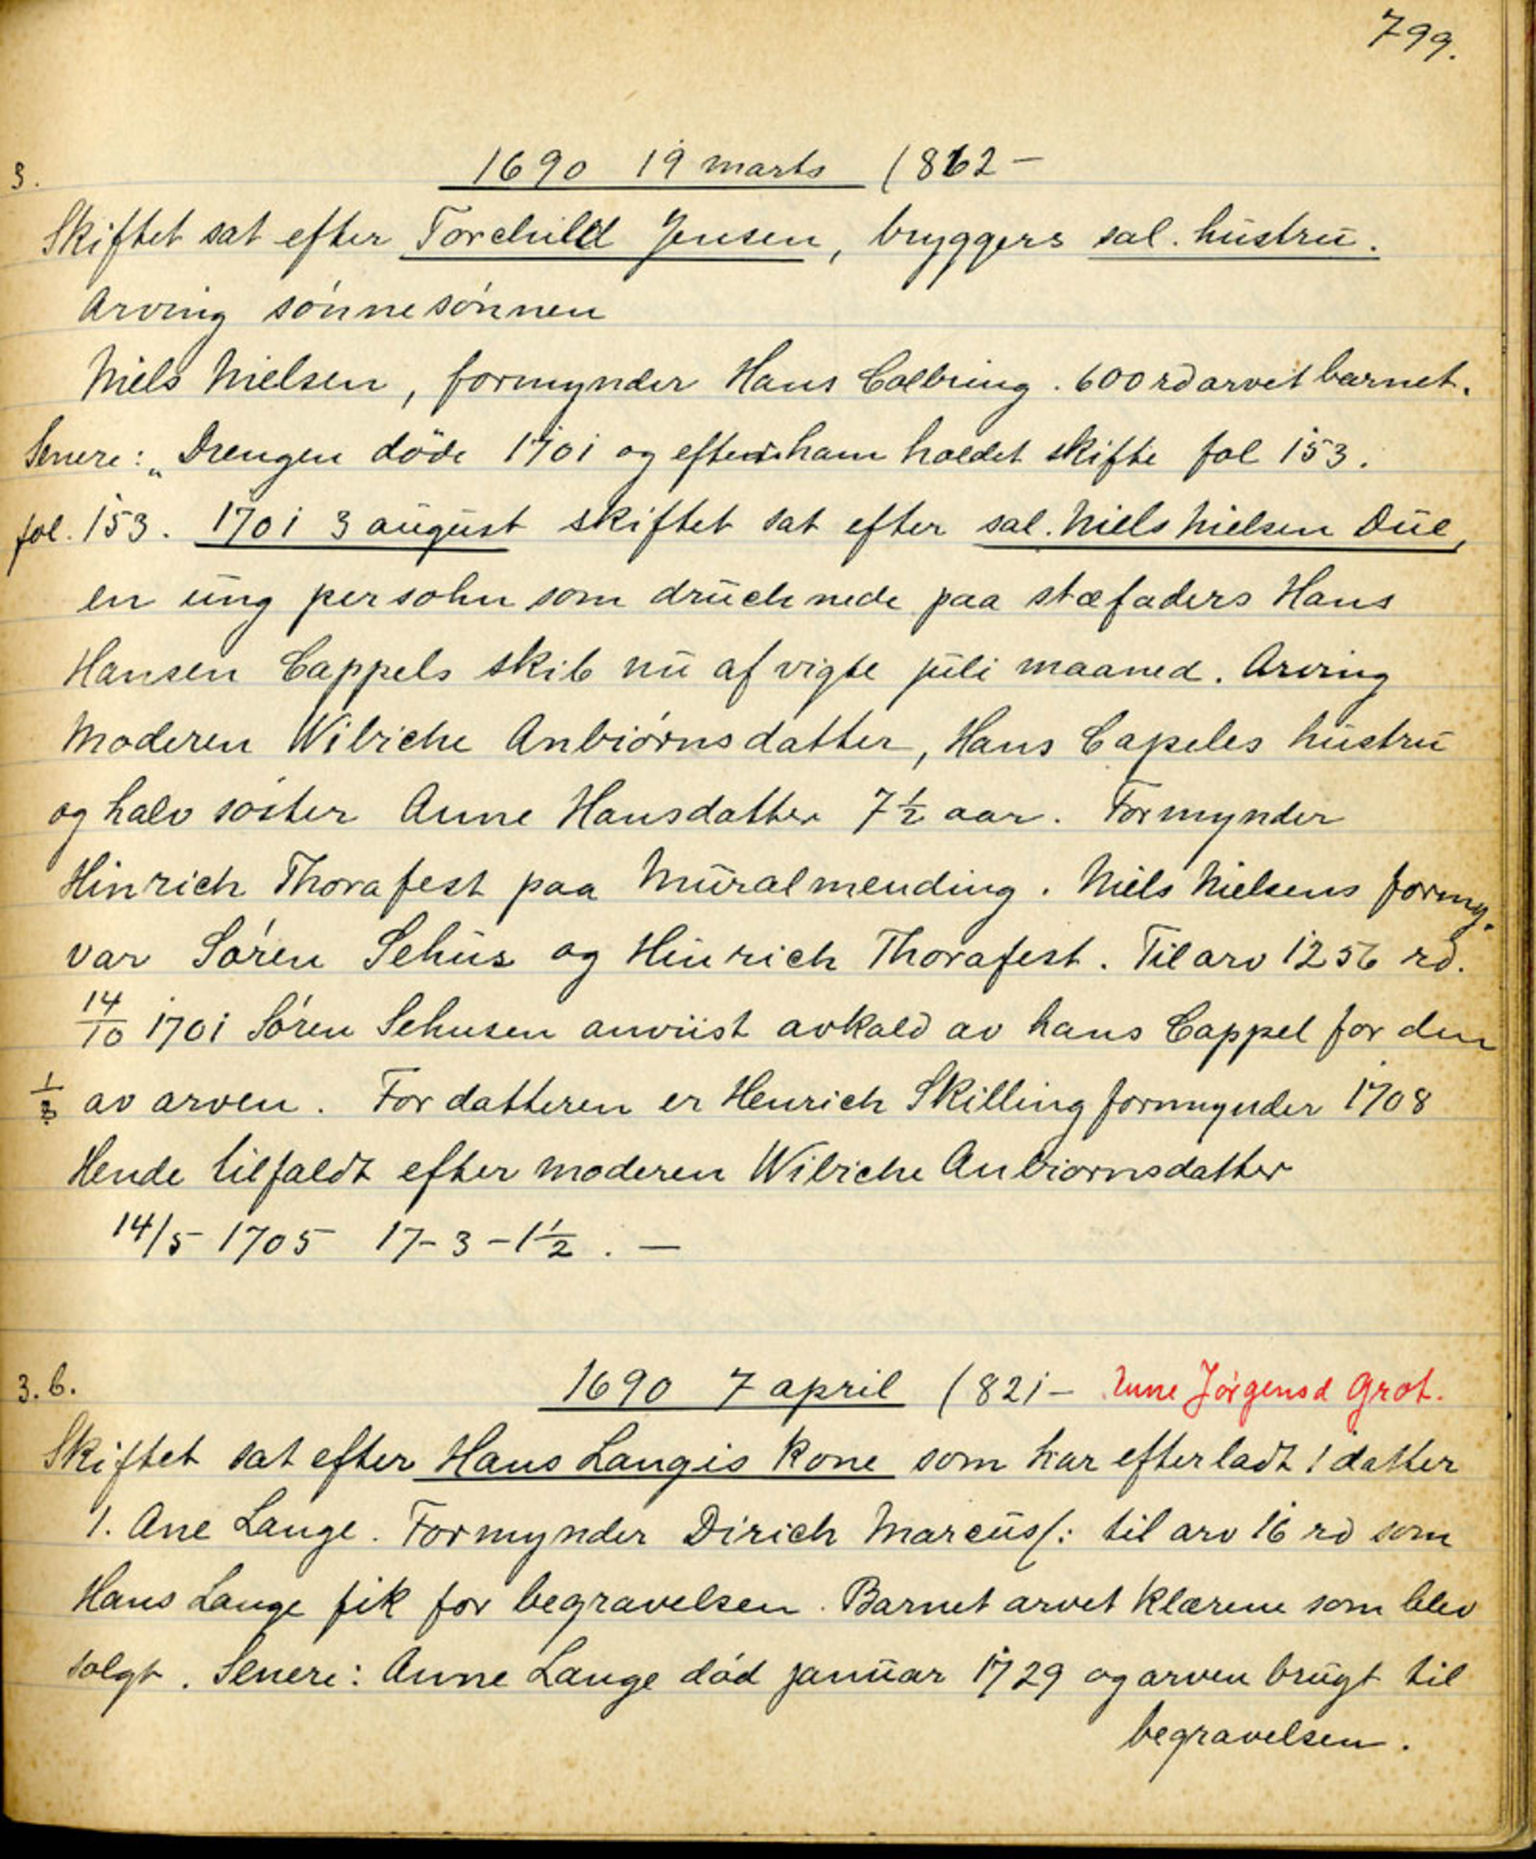 799.
3. 1690 19 marts (862 –
Skiftet sat efter Torchild Jensen, bryggers sal. hustru.
Arving sønnesønnen
Niels Nielsen, formynder Hans Colbring. 600 rd arvet barnet.
Senere: „Drengen døde 1701 og efter ham holdet skifte fol 153.
fol. 153. 1701 3 august skiftet sat efter sal. Niels Nielsen Due,
en ung persohn som druchnede paa stæfaders Hans
Hansen Cappels skib nu afvigte juli maaned. Arving
Moderen Wibiche Anbiørnsdatter, Hans Capeles hustru
og halv søster Anne Hansdatter 7½ aar. Formynder
Hinrich Thorafest paa Muralmending. Niels Nielsens formy.
var Søren Sehus og Hinrich Thorafest. Til arv 1256 rd.
14/10 1701 Søren Sehusen anviist avkald av hans Cappel for den
1/3 av arven. For datteren er Henrich Skilling formynder 1708
Hende tilfaldt efter moderen Wibiche Anbiornsdatter
14/5 1705 17-3-1½. —
3.b. 1690 7 april (821 – Anne Jørgensd Grot.
Skiftet sat efter Hans Langis kone som har efterladt 1 datter
1. Ane Lange. Formynder Dirich Marcus/: til arv 16 rd som
Hans Lange fik for begravelsen. Barnet arvet klærene som blev
solgt. Senere: Anne Lange død januar 1729 og arven brugt til
begravelsen.